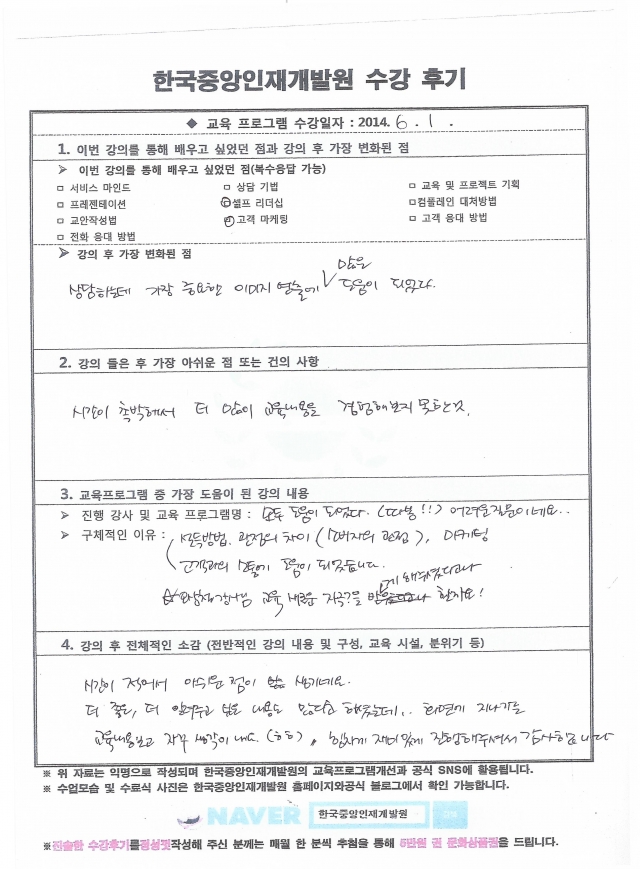 한국중앙인재개발원 수강 후기
◆ 교육 프로그램 수강일자 : 2014. 6. 1.
1. 이번 강의를 통해 배우고 싶었던 점과 강의 후 가장 변화된 점
➢ 이번 강의를 통해 배우고 싶었던 점(복수응답 가능)
□ 서비스 마인드 □ 상담 기법 □ 교육 및 프로젝트 기획
□ 프레젠테이션 □셀프 리더십 □컴플레인 대처방법
□ 교안작성법 □ 고객 마케팅 □ 고객 응대 방법
□ 전화 응대 방법
➢ 강의 후 가장 변화된 점
많은
상담하는데 가장 중요한 이미지 도움이 되었다.
2. 강의 들은 후 가장 아쉬운 점 또는 건의 사항
시간이 촉박해서 더 많이 교육내용을 경험해보지 못한것.
3. 교육프로그램 중 가장 도움이 된 강의 내용
➢ 진행 강사 및 교육 프로그램명 : 모두 도움이 되었다. (따봉!!) 어려운질문이네요..
➢ 구체적인 이유 : 설득방법. 관점의 차이 ( 관점), DA기법
고객과의 도움이 되었습니다.
교육 새로운
4. 강의 후 전체적인 소감 (전반적인 강의 내용 및 구성, 교육 시설, 분위기 등)
시간이 적어서 아쉬운 점이 생기네요.
더 좋은, 더 알려주고 싶은 내용도 많다고 하셨는데.. 화면에 지나가는
교육내용보고 자꾸 생각이 나네요 (ㅎㅎ). 힘차게 재미있게 진행해주셔서 감사합니다
※ 위 자료는 익명으로 작성되며 한국중앙인재개발원의 교육프로그램개선과 공식 SNS에 활용됩니다.
※ 수업모습 및 수료식 사진은 한국중앙인재개발원 홈페이지와공식 블로그에서 확인 가능합니다.
NAVER 한국중앙인재개발원
※진솔한 수강후기를정성껏작성해 주신 분께는 매월 한 분씩 추첨을 통해 5만원 권 문화상품권을 드립니다.